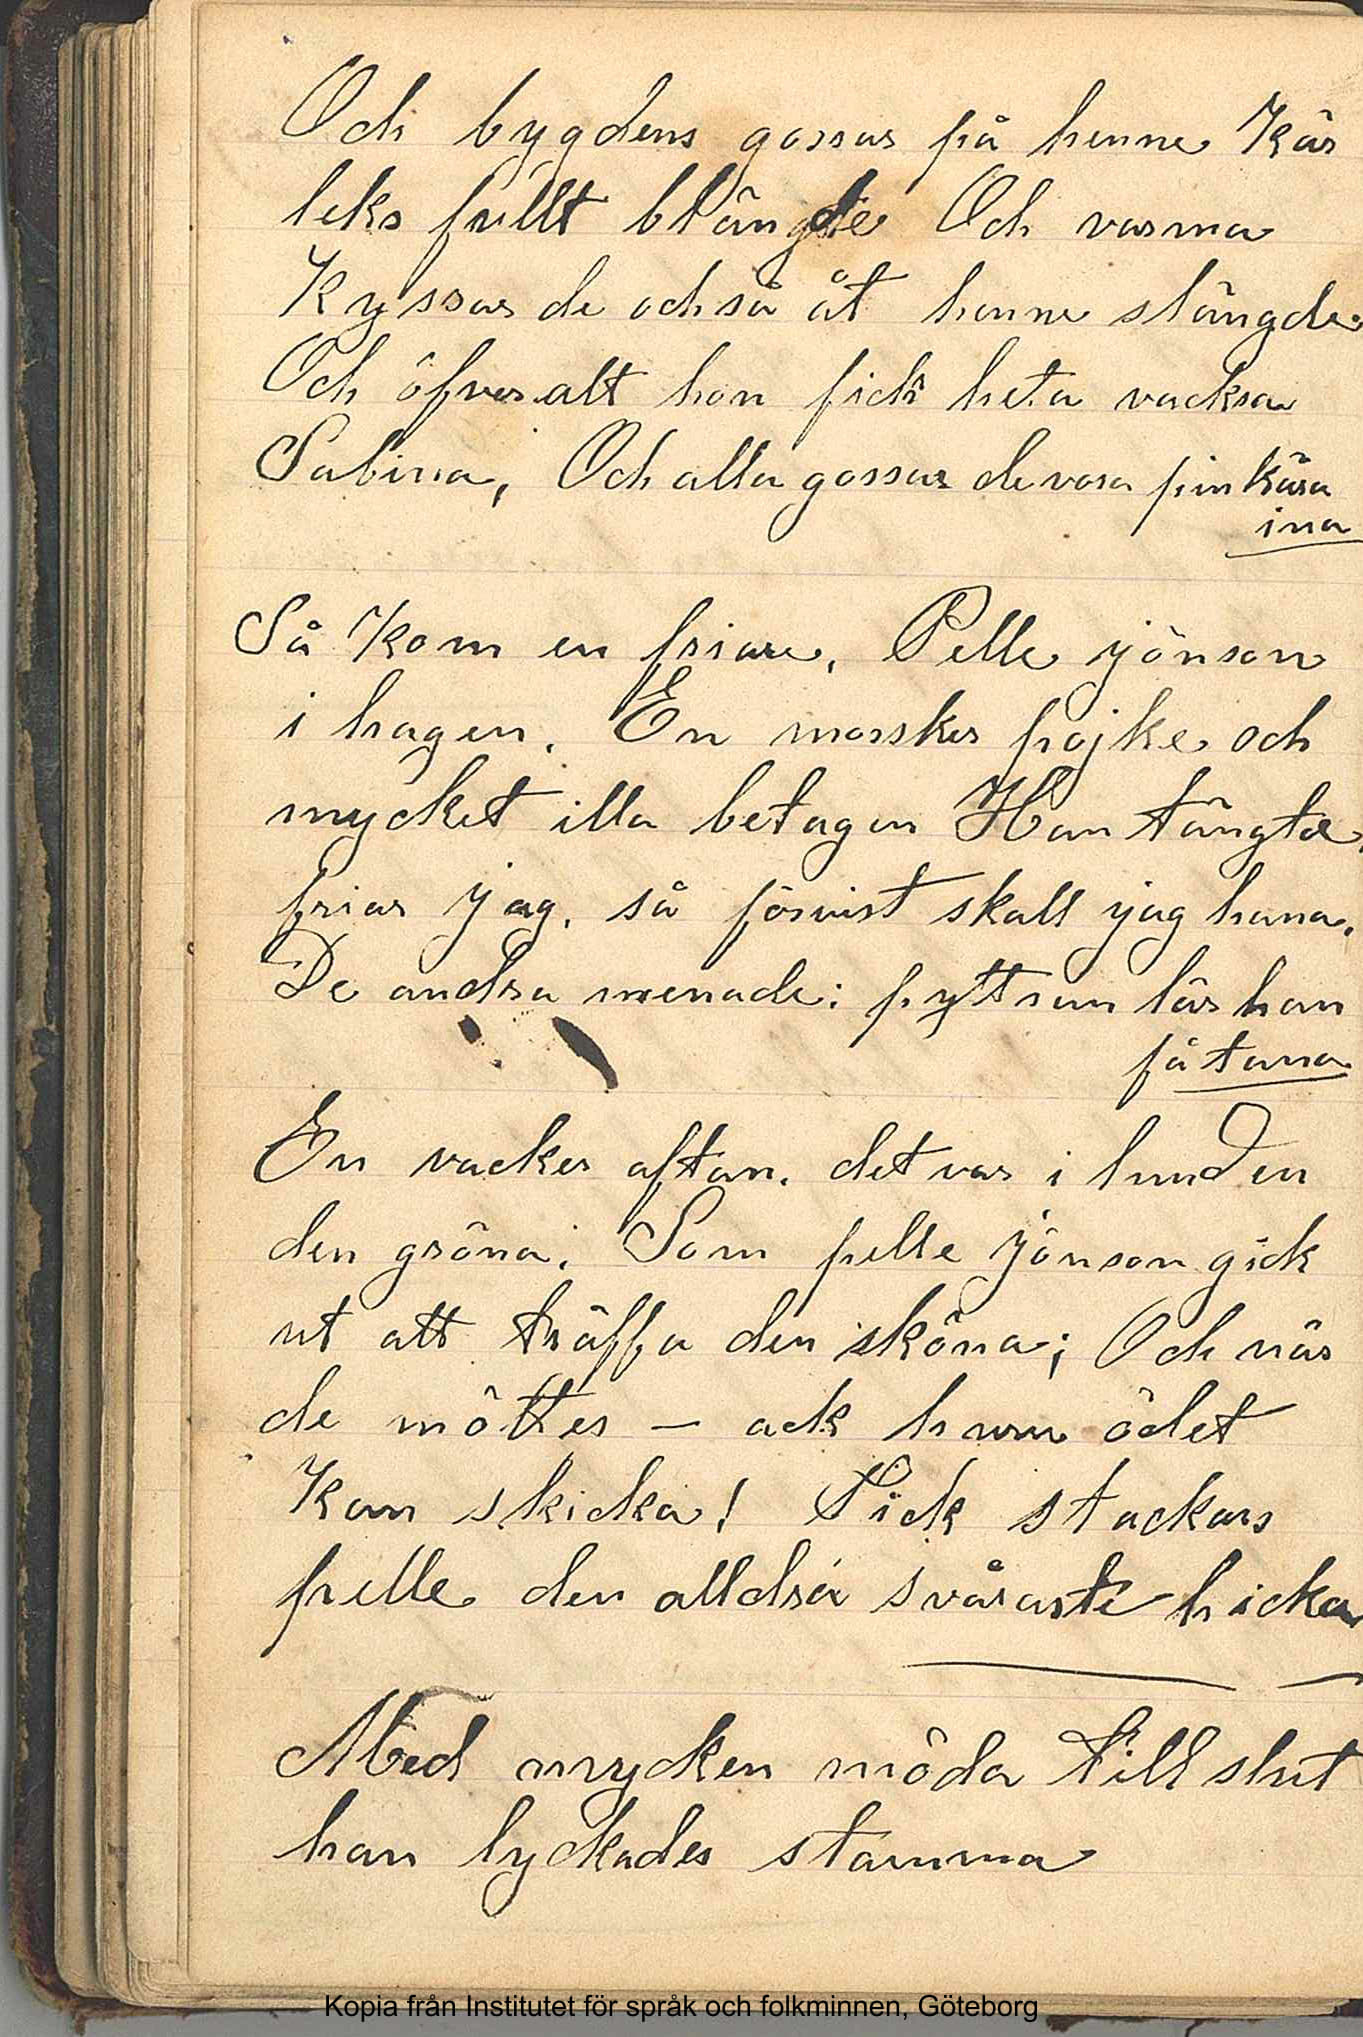 Och bygdens gossar på henne Kär
leks fullt blängde Och varma
Kyssar de också åt henne slängde.
Och öfver alt hon fick heta vackra
Sabina, Och alla gossar de vara pin kära
ina
Så kom en friare, Pelle jönson
i hagen. En morsker pojke och
mycket illa betagen Han tängte,
friar jag, så förvist skall jag hana.
De andra menade: pytt san lär han
få tana
En vacker aftan, det var i lunden
den gröna. Som pelle jönson gick
ut att träffa den sköna; Och när
de möttes – ack huru ödet
Kan skicka! Fick stackars
pelle den alldra svåraste hicka
Med mycken möda till slut
han lyckades stamma
Kopia från Institutet för språk och folkminnen, Göteborg